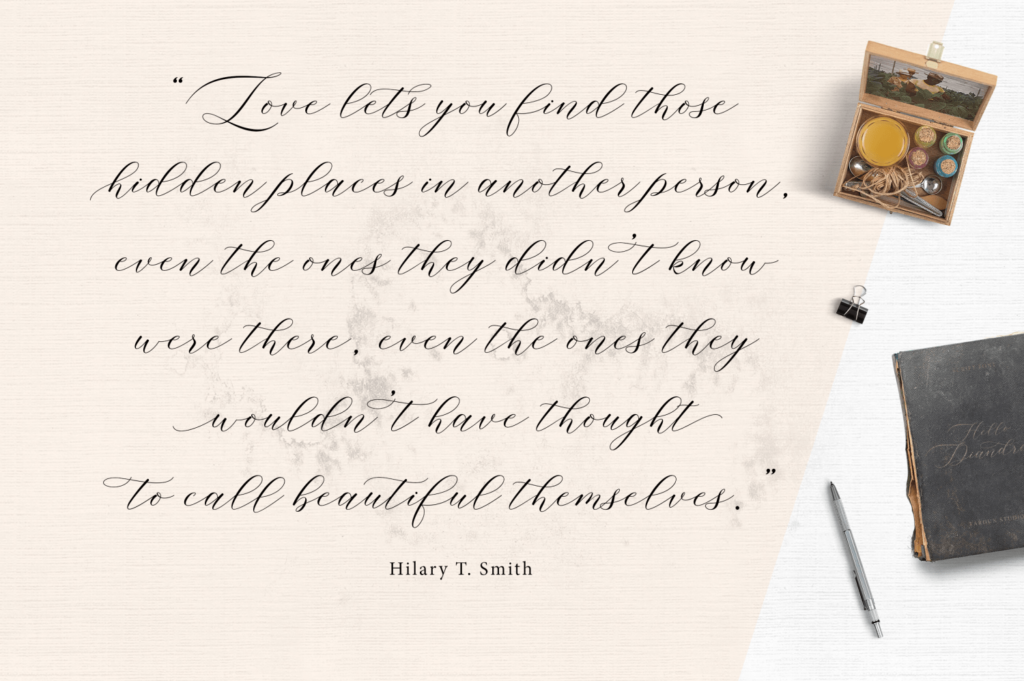 “ Love lets you find those
hidden places in another person,
even the ones they didn't know
were there, even the ones they
wouldn't have thought
to call beautiful themselves. ”
Hilary T. Smith
Hello